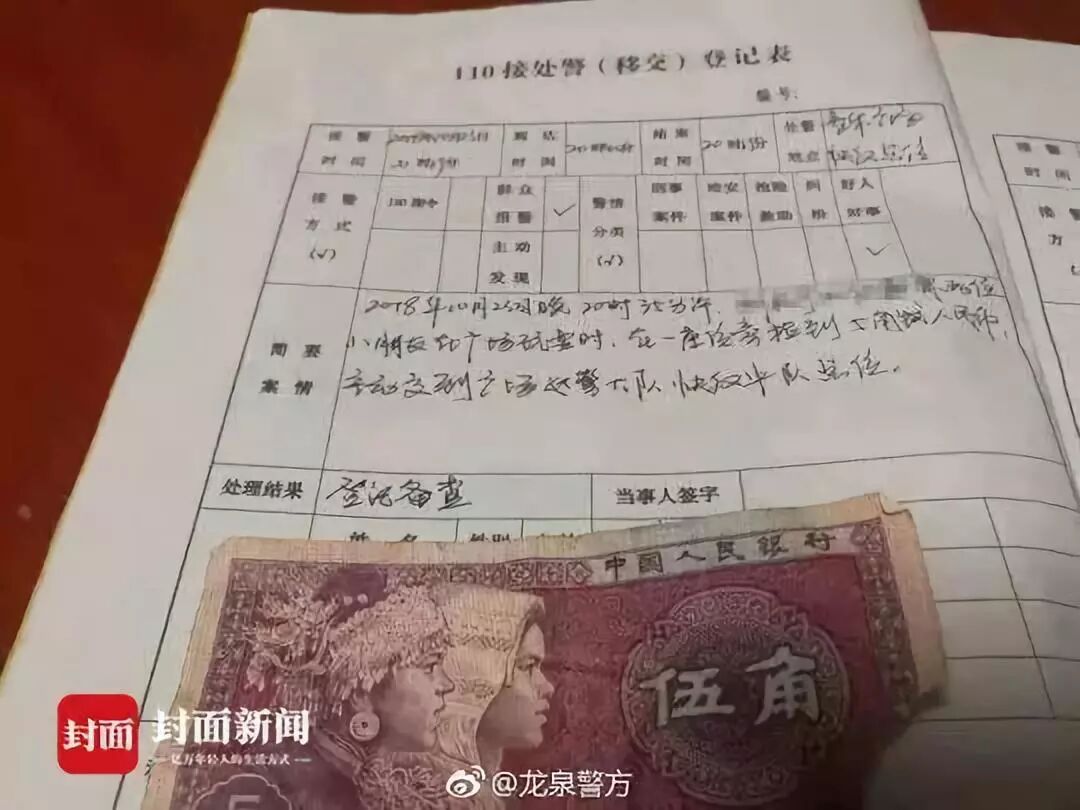 110接处警（移交）登记表
编号：
接警时间
到达时间
结案时间
20时
处警地点
接警
时间
接警方式（√）
110指令
群众报警
✓
主动发现
警情分类（√）
刑事案件
治安案件
抢险救助
纠纷
好人好事
✓
接警
方
简要案情
2018年10月25日晚20时35分许，
小朋友在广场玩耍时，在一座位旁捡到五角钱人民币，
主动交到广场巡警大队快反中队点位。
处理结果
登记备查
当事人签字
姓名
性别
中国人民银行
伍角
5
封面
封面新闻
亿万年轻人的生活方式
@龙泉警方